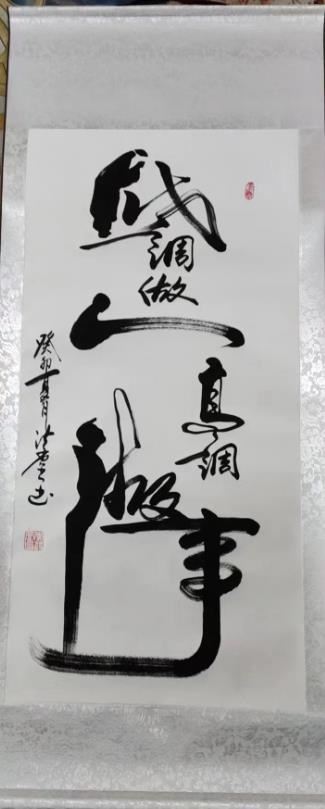 低调做
人
高调
做事
癸卯夏月